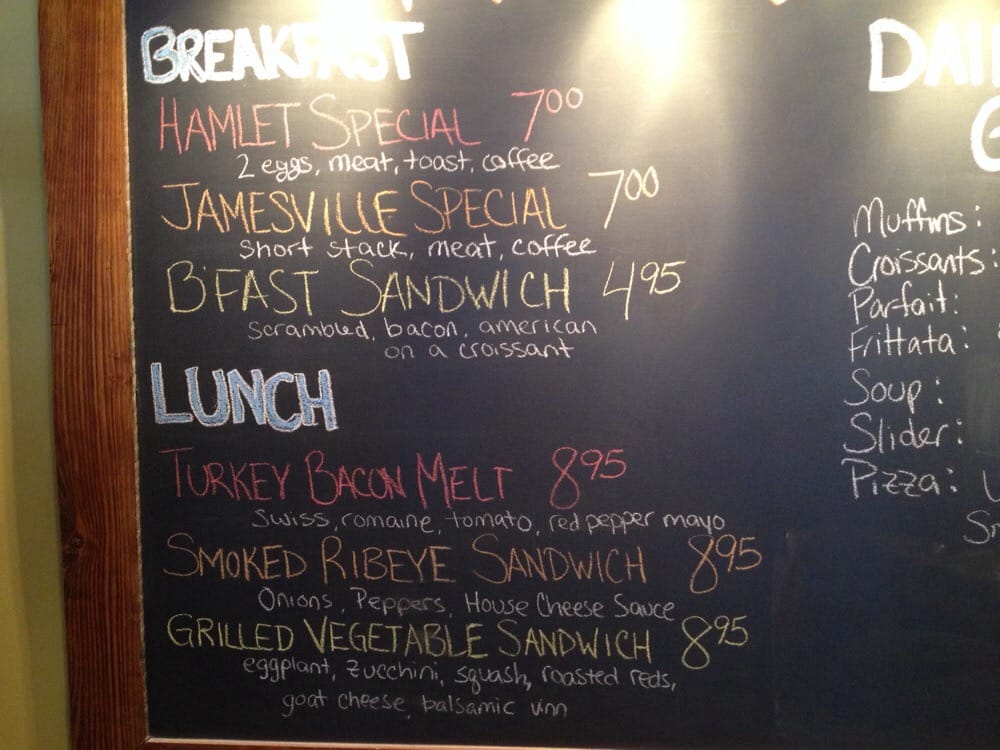 BREAKFAST
HAMLET SPECIAL 700
2 eggs, meat, toast, coffee
JAMESVILLE SPECIAL 700
short stack, meat, coffee
B'FAST SANDWICH 495
scrambled, bacon, american
on a croissant
LUNCH
TURKEY BACON MELT 895
swiss, romaine, tomato, red pepper mayo
SMOKED RIBEYE SANDWICH 895
Onions, Peppers, House Cheese Sauce
GRILLED VEGETABLE SANDWICH 895
eggplant, zucchini, squash, roasted reds,
goat cheese, balsamic vinn
DAI
G
Muffins:
Croissants:
Parfait:
Frittata:
Soup:
Slider:
Pizza: